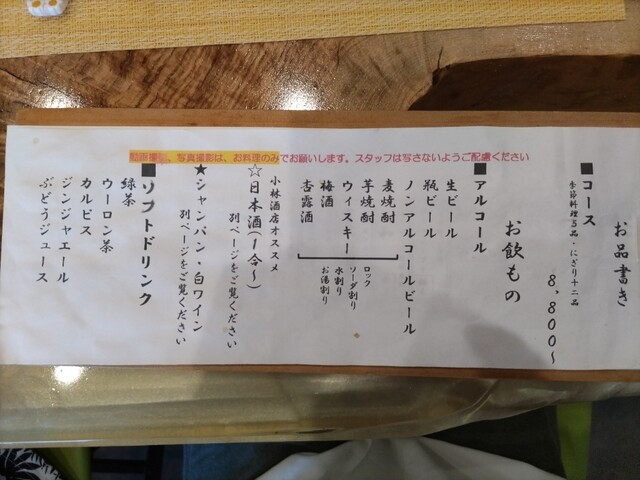 動画撮影、写真撮影は、お料理のみでお願いします。スタッフは写さないようご配慮ください
お品書き
■コース
季節料理五品・にぎり十二品
8,800〜
お飲もの
■アルコール
生ビール
瓶ビール
ノンアルコールビール
麦焼酎
芋焼酎
ウィスキー
梅酒
杏露酒
ロック
ソーダ割り
水割り
お湯割り
小林酒店オススメ
☆日本酒(1合〜)
別ページをご覧ください
★シャンパン・白ワイン
別ページをご覧ください
■ソフトドリンク
緑茶
ウーロン茶
カルピス
ジンジャエール
ぶどうジュース